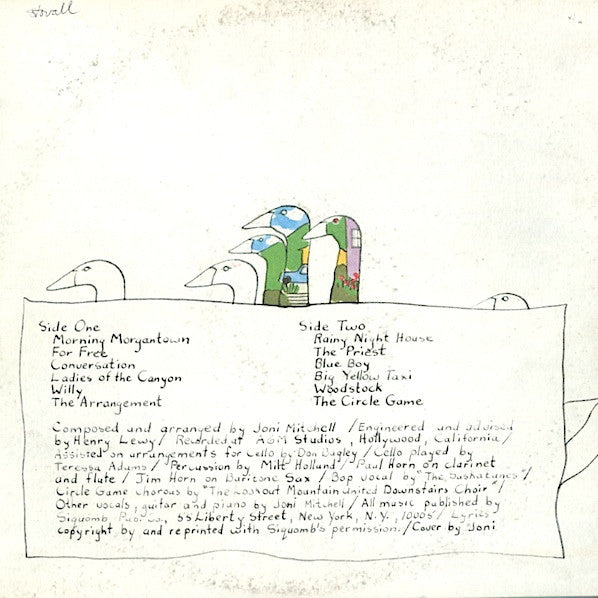 Stovall
Side One
Morning Morgantown
For Free
Conversation
Ladies of the Canyon
Willy
The Arrangement
Side Two
Rainy Night House
The Priest
Blue Boy
Big Yellow Taxi
Woodstock
The Circle Game
Composed and arranged by Joni Mitchell / Engineered and advised
by Henry Lewy / Recorded at A&M Studios, Hollywood, California /
Assisted on arrangements for Cello by Don Bagley / Cello played by
Teressa Adams / Percussion by Milt Holland / Paul Horn on clarinet
and flute / Jim Horn on Baritone Sax / Bop vocal by "The Saskatunes" /
Circle Game Chorous by "The Lookout Mountain United Downstairs Choir" /
Other vocals, guitar and piano by Joni Mitchell / All music published by
Siquomb Publ. Co., 55 Liberty Street, New York, N.Y., 10005 / Lyrics
copyright by and reprinted with Siquomb's permission. / Cover by Joni